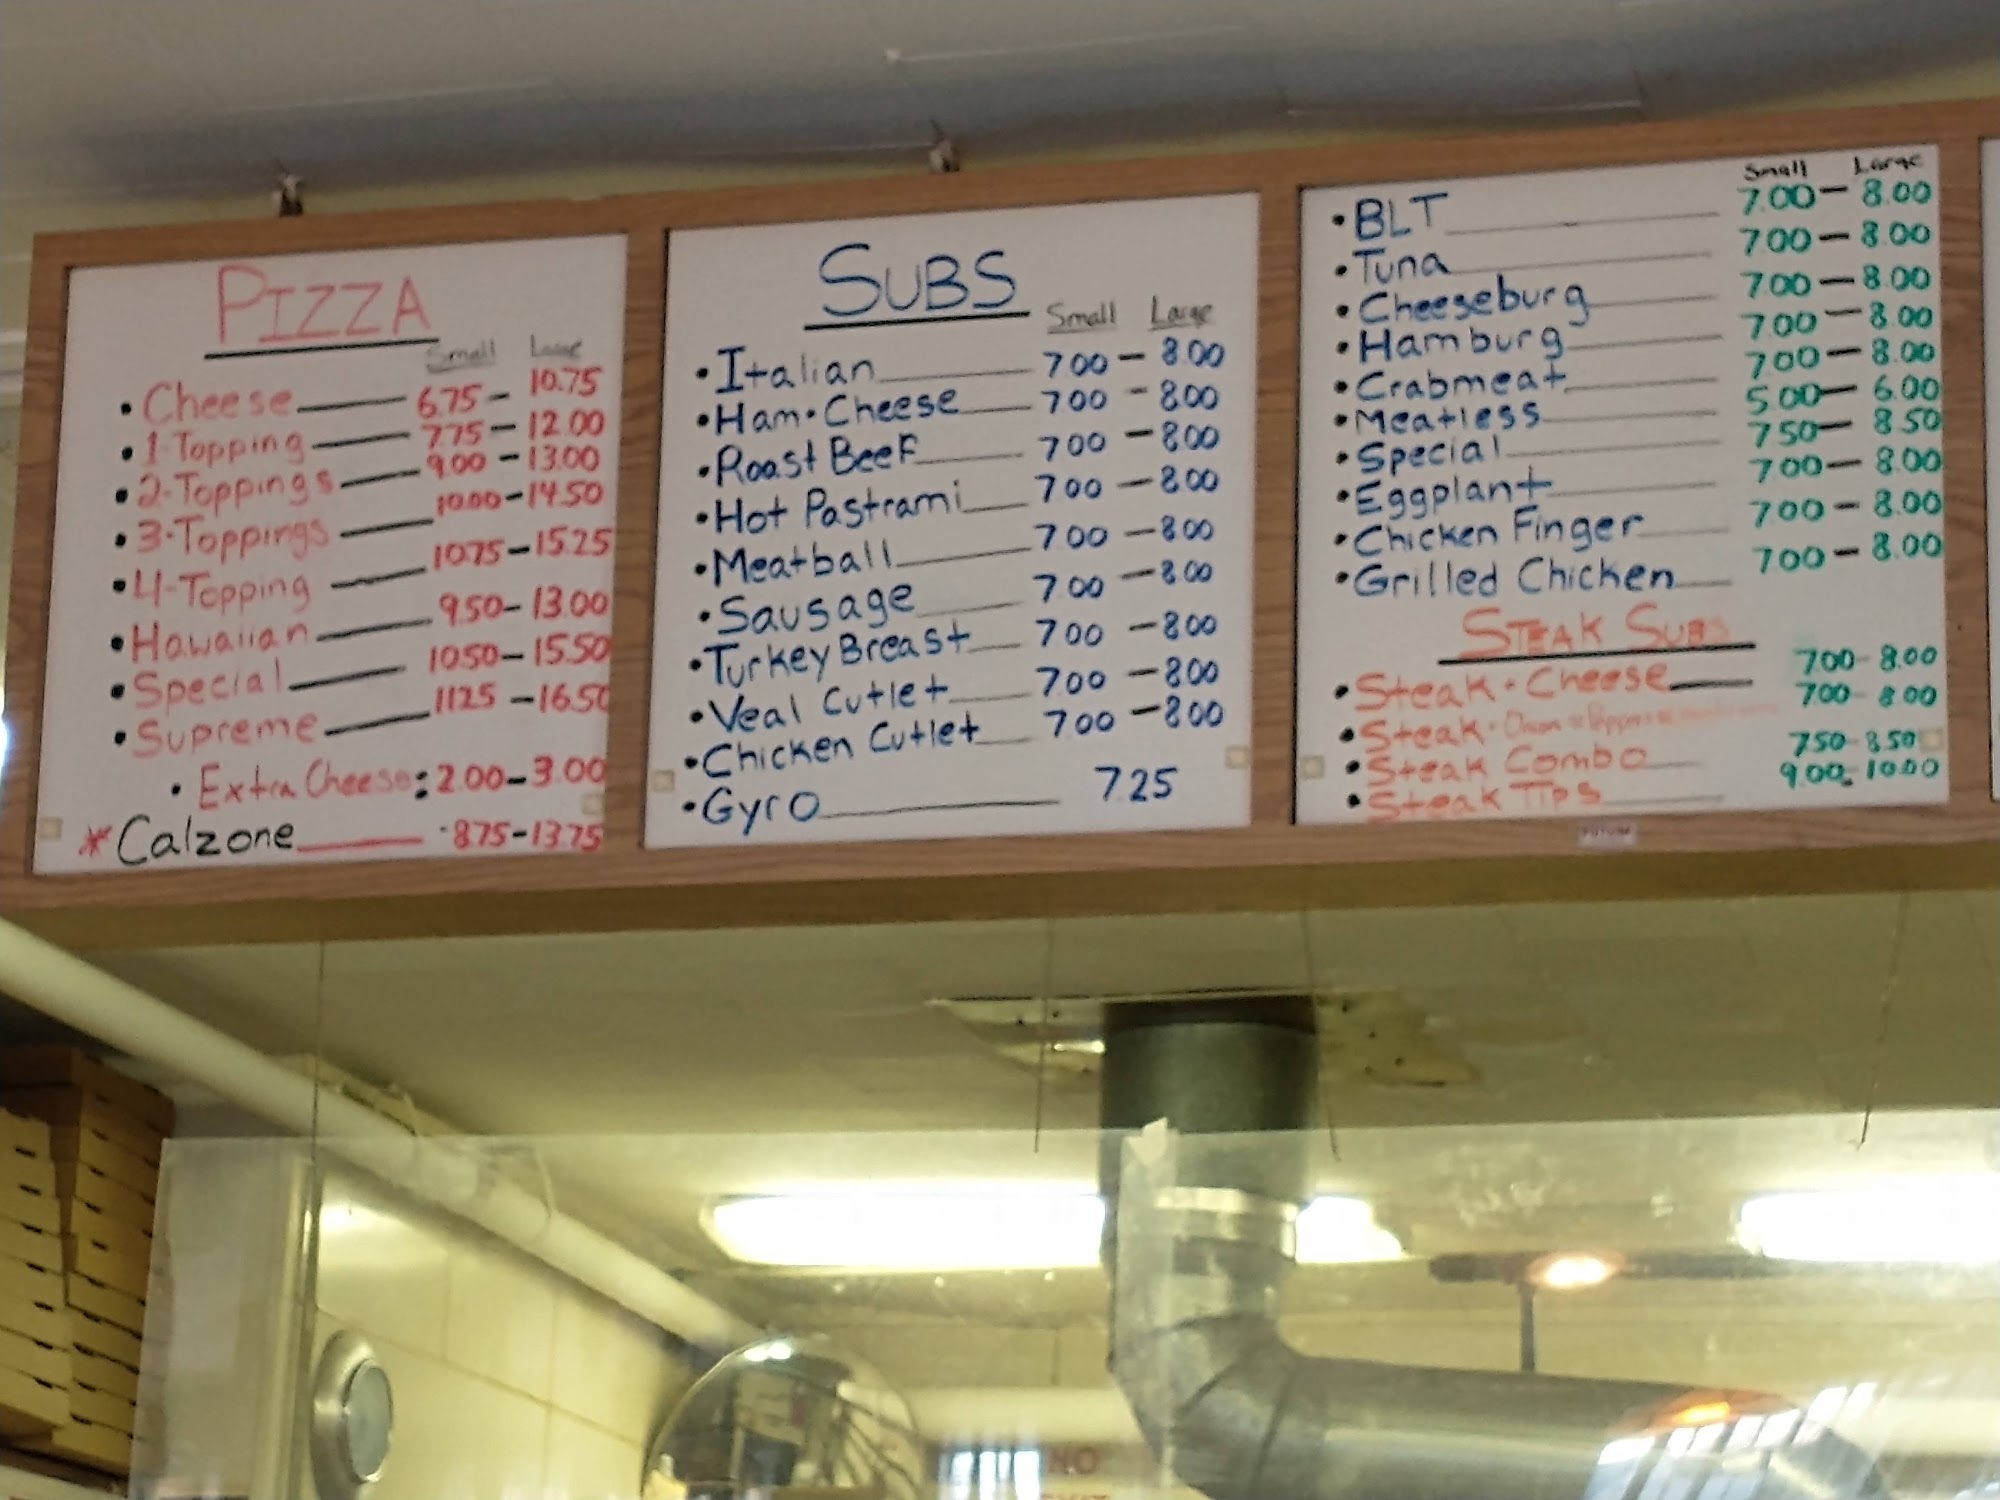 PIZZA
Small Large
• Cheese 6.75 - 10.75
• 1-Topping 775 - 12.00
• 2-Toppings 9.00 - 13.00
• 3-Toppings 10.00 - 14.50
• 4-Topping 10.75 - 15.25
• Hawaiian 9.50 - 13.00
• Special 10.50 - 15.50
• Supreme 11.25 - 16.50
• Extra Cheese: 2.00 - 3.00
* Calzone 8.75 - 13.75
SUBS
Small Large
• Italian 700 - 8.00
• Ham • Cheese 700 - 800
• Roast Beef 700 - 800
• Hot Pastrami 700 - 800
• Meatball 700 - 800
• Sausage 700 - 800
• Turkey Breast 700 - 800
• Veal Cutlet 700 - 800
• Chicken Cutlet 700 - 800
• Gyro 7.25
Small Large
• BLT 7.00 - 8.00
• Tuna 700 - 8.00
• Cheeseburg 700 - 8.00
• Hamburg 700 - 8.00
• Crabmeat 700 - 8.00
• Meatless 500 - 6.00
• Special 750 - 8.50
• Eggplant 700 - 8.00
• Chicken Finger 700 - 8.00
• Grilled Chicken 700 - 8.00
STEAK SUBS
• Steak • Cheese 700 - 8.00
• Steak • Onion 700 - 8.00
• Steak Combo 750 - 8.50
• Steak Tips 9.00 - 10.00
NO
EXIT